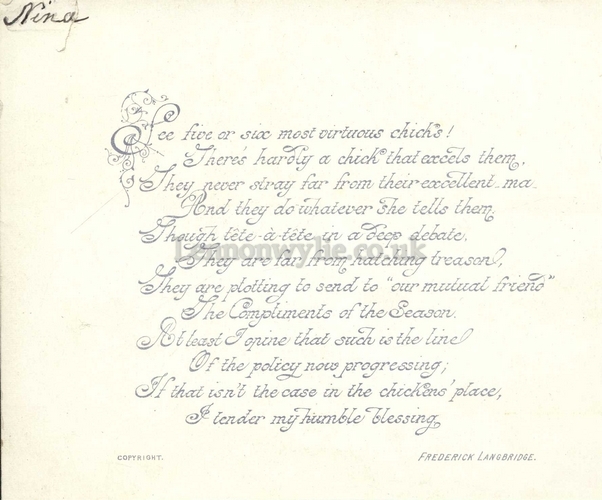 Nina
See five or six most virtuous chicks!
There's hardly a chick that excels them,
They never stray far from their excellent ma
And they do whatever she tells them.
Though tête-à-tête in a deep debate,
They are far from hatching treason,
They are plotting to send to "our mutual friend"
The Compliments of the Season.
At least I opine that such is the line
Of the policy now progressing;
If that isn't the case in the chickens' place,
I tender my humble blessing.
COPYRIGHT.
FREDERICK LANGBRIDGE.
lennonwylie.co.uk